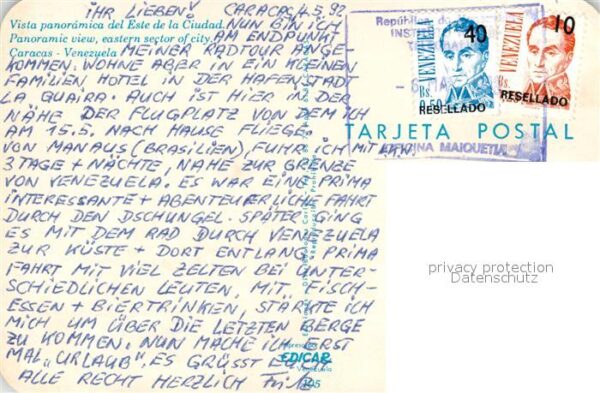 IHR LIEBEN! CARACAS, 4.5.92
Vista panorámica del Este de la Ciudad.
NUN BIN ICH
Panoramic view, eastern sector of city.
AM ENDPUNKT
Caracas - Venezuela
MEINER RADTOUR ANGE-
KOMMEN. WOHNE ABER IN EIN KLEINEN
FAMILIEN HOTEL IN DER HAFENSTADT
LA GUAIRA. AUCH IST HIER IN DER
NÄHE DER FLUGPLATZ VON DEM ICH
AM 15.5. NACH HAUSE FLIEGE.
VON MANAUS (BRASILIEN), FUHR ICH MIT LKW.
3 TAGE + NÄCHTE, NAHE ZUR GRENZE
VON VENEZUELA. ES WAR EINE PRIMA
INTERESSANTE + ABENTEUERLICHE FAHRT
DURCH DEN DSCHUNGEL. SPÄTER GING
ES MIT DEM RAD DURCH VENEZUELA
ZUR KÜSTE + DORT ENTLANG. PRIMA
FAHRT MIT VIEL ZELTEN BEI UNTER-
SCHIEDLICHEN LEUTEN, MIT FISCH-
ESSEN + BIERTRINKEN, STÄRKTE ICH
MICH UM ÜBER DIE LETZTEN BERGE
ZU KOMMEN. NUN MACHE ICH ERST
MAL „URLAUB", ES GRÜSST EUCH
ALLE RECHT HERZLICH
EDICAR
Venezuela
105
República de
INST
OFICINA MAIQUETIA
40
VENEZUELA
Bs.
RESELLADO
10
VENEZUELA
Bs.
RESELLADO
TARJETA POSTAL
privacy protection
Datenschutz